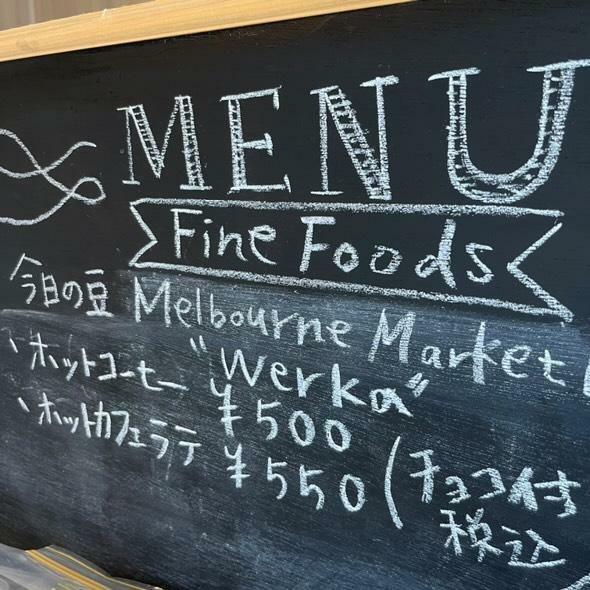 MENU
Fine Foods
今日の豆 Melbourne Market
"Werka"
、ホットコーヒー ¥500
、ホットカフェラテ ¥550 (チョコ付
税込